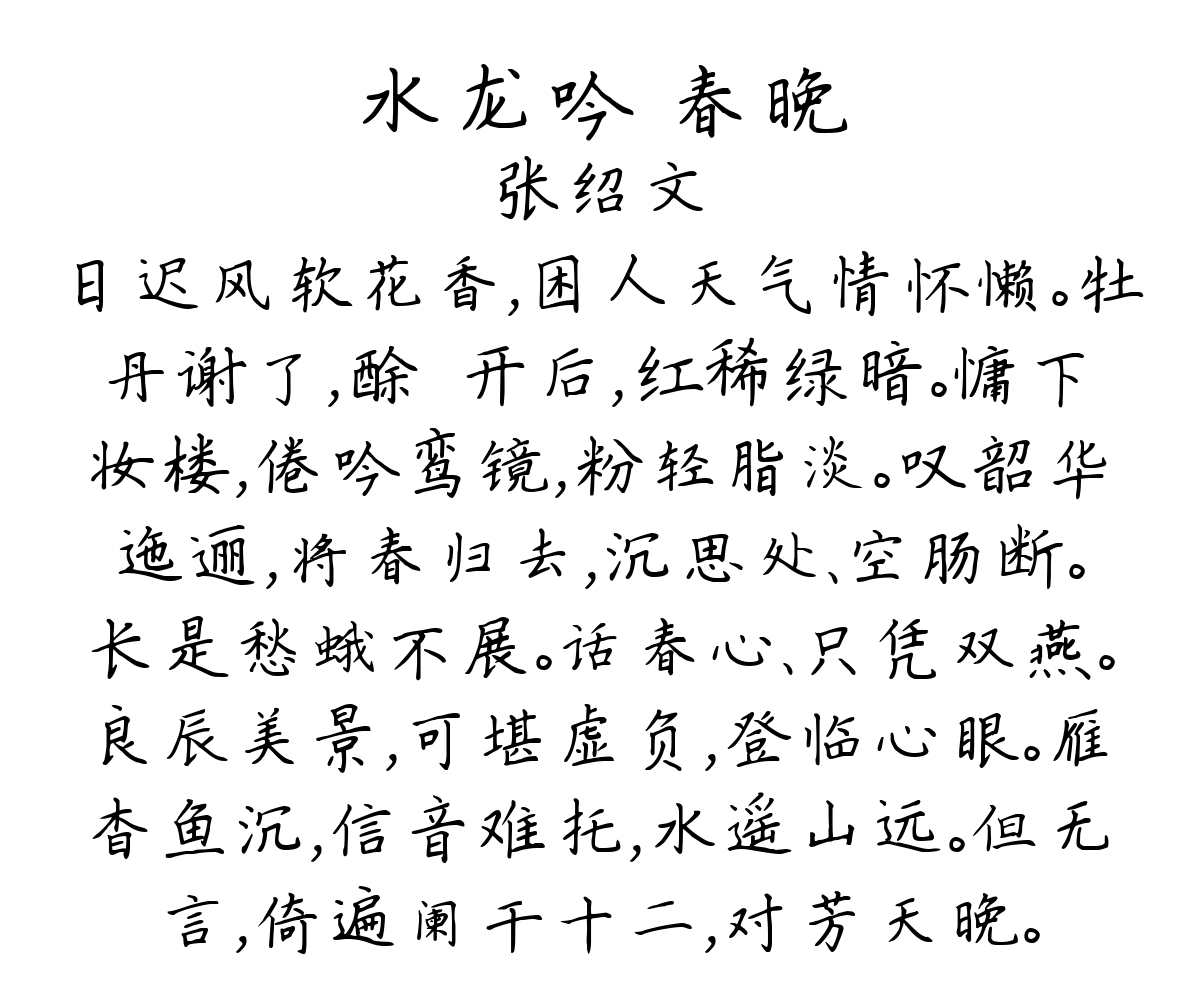 水龙吟 春晚
张绍文
日迟风软花香,困人天气情怀懒。牡
丹谢了,酴 开后,红稀绿暗。慵下
妆楼,倦吟鸾镜,粉轻脂淡。叹韶华
迤逦,将春归去,沉思处、空肠断。
长是愁蛾不展。话春心、只凭双燕。
良辰美景,可堪虚负,登临心眼。雁
杳鱼沉,信音难托,水遥山远。但无
言,倚遍阑干十二,对芳天晚。